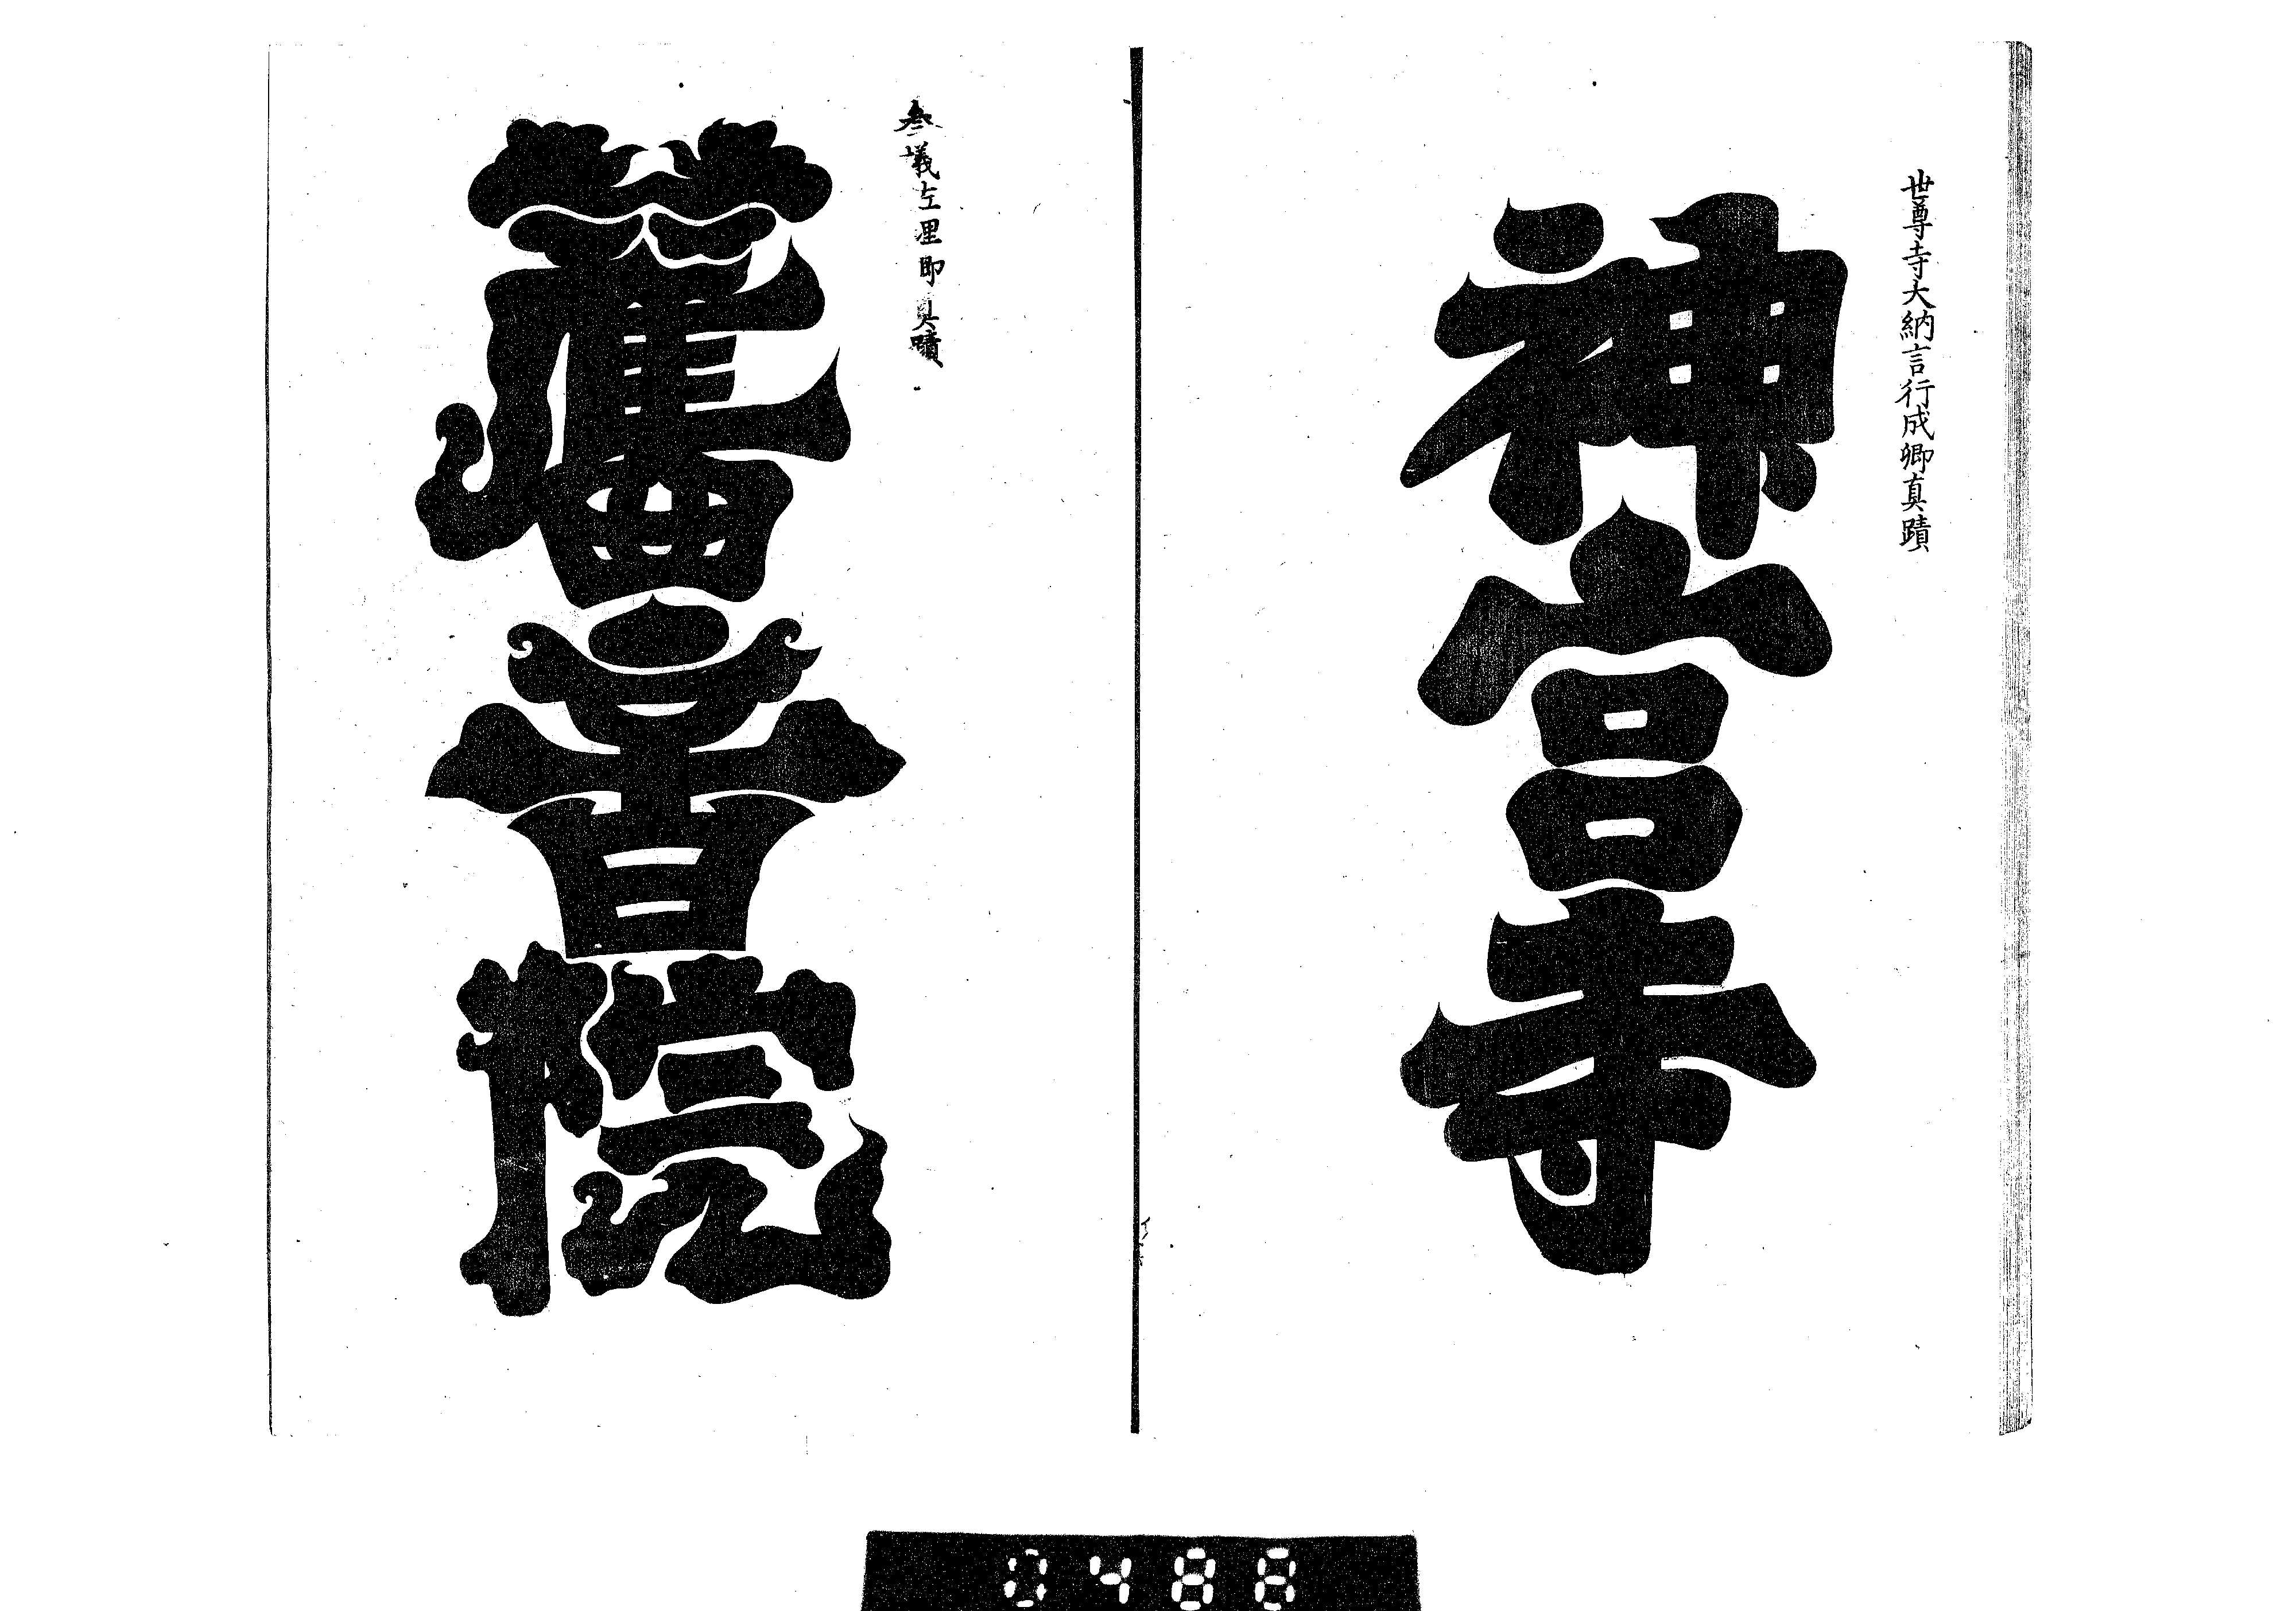 世尊寺大納言行成卿真蹟
神宮寺
参議佐理卿真蹟
院
0488